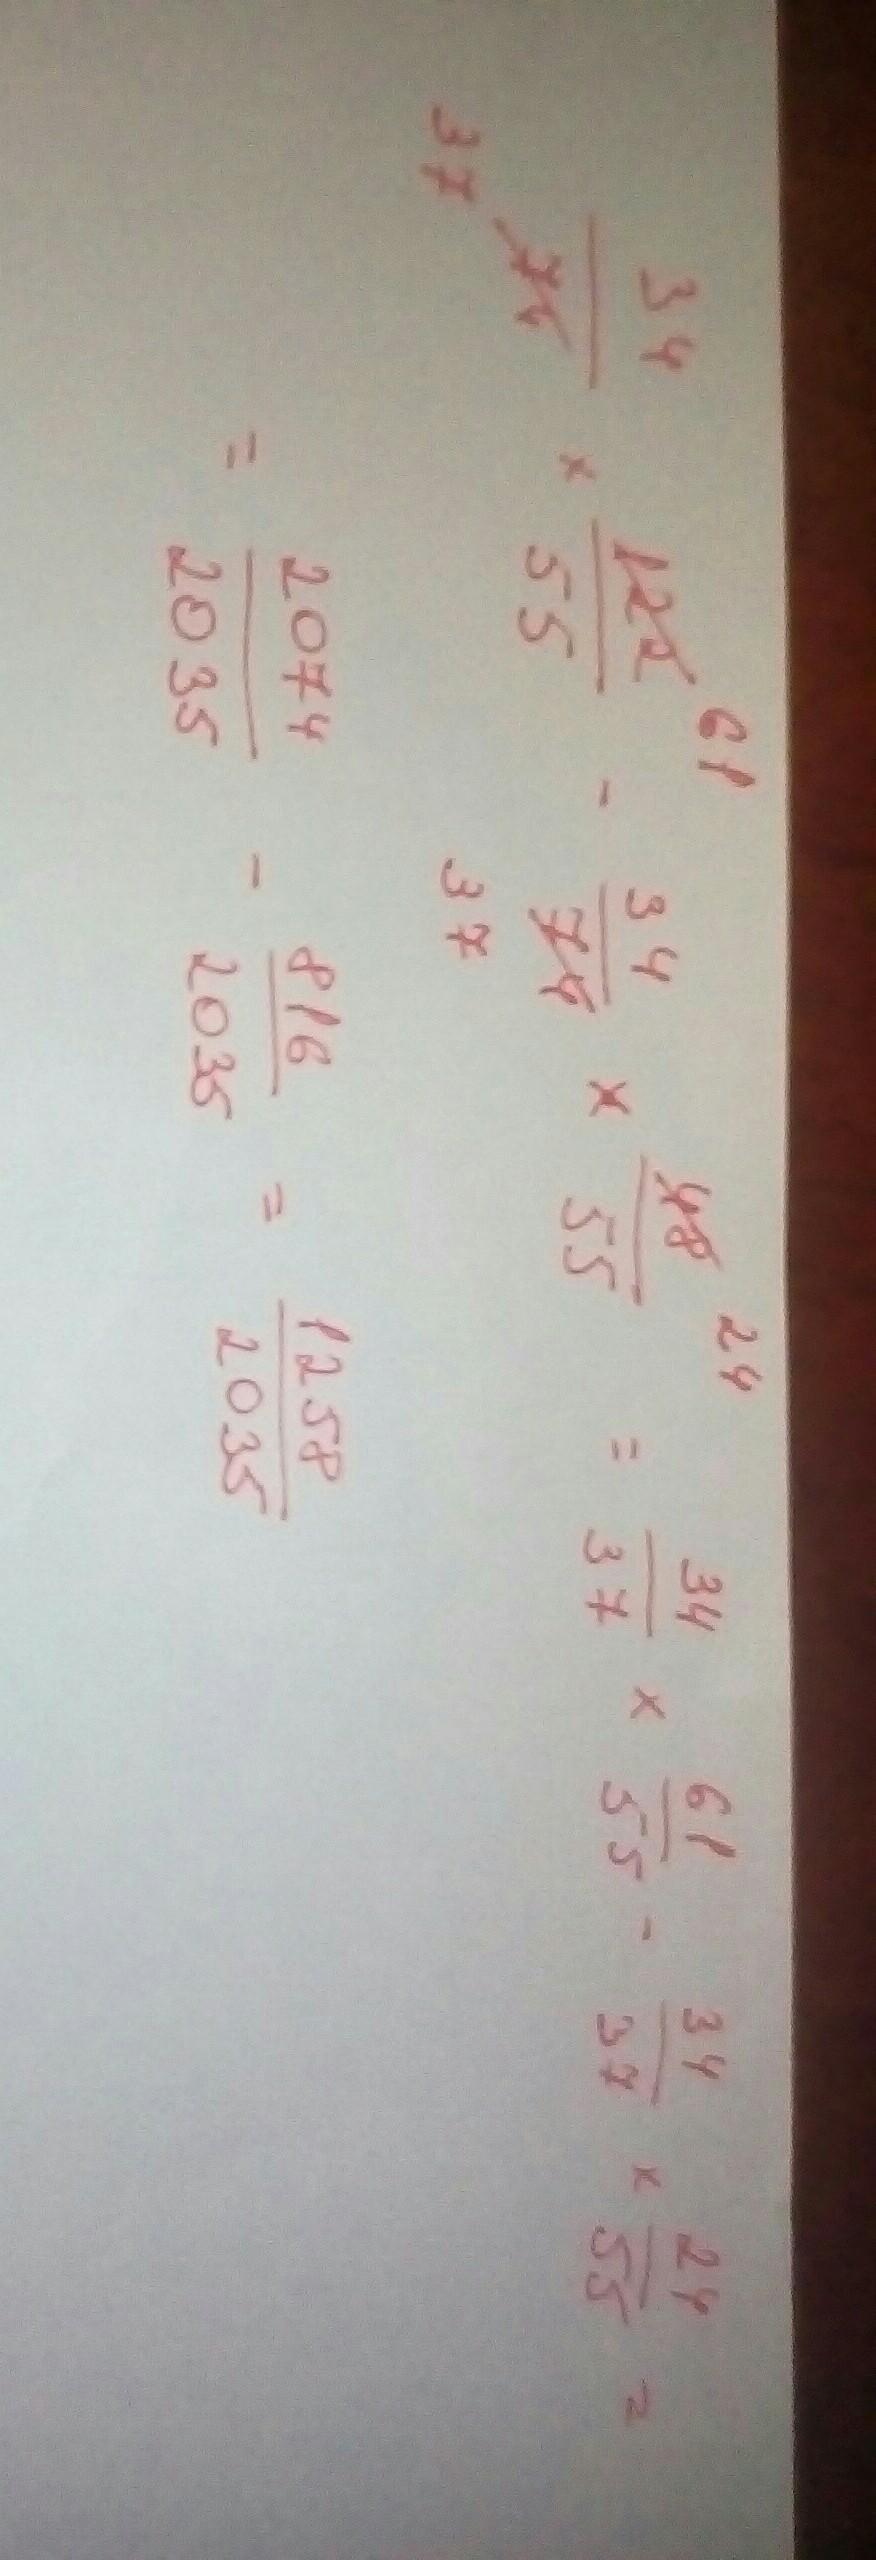 34/74 × 122/55 - 34/74 × 48/55 = 34/37 × 61/55 - 34/37 × 24/55 =
61 24
37 37
= 2074/2035 - 816/2035 = 1258/2035